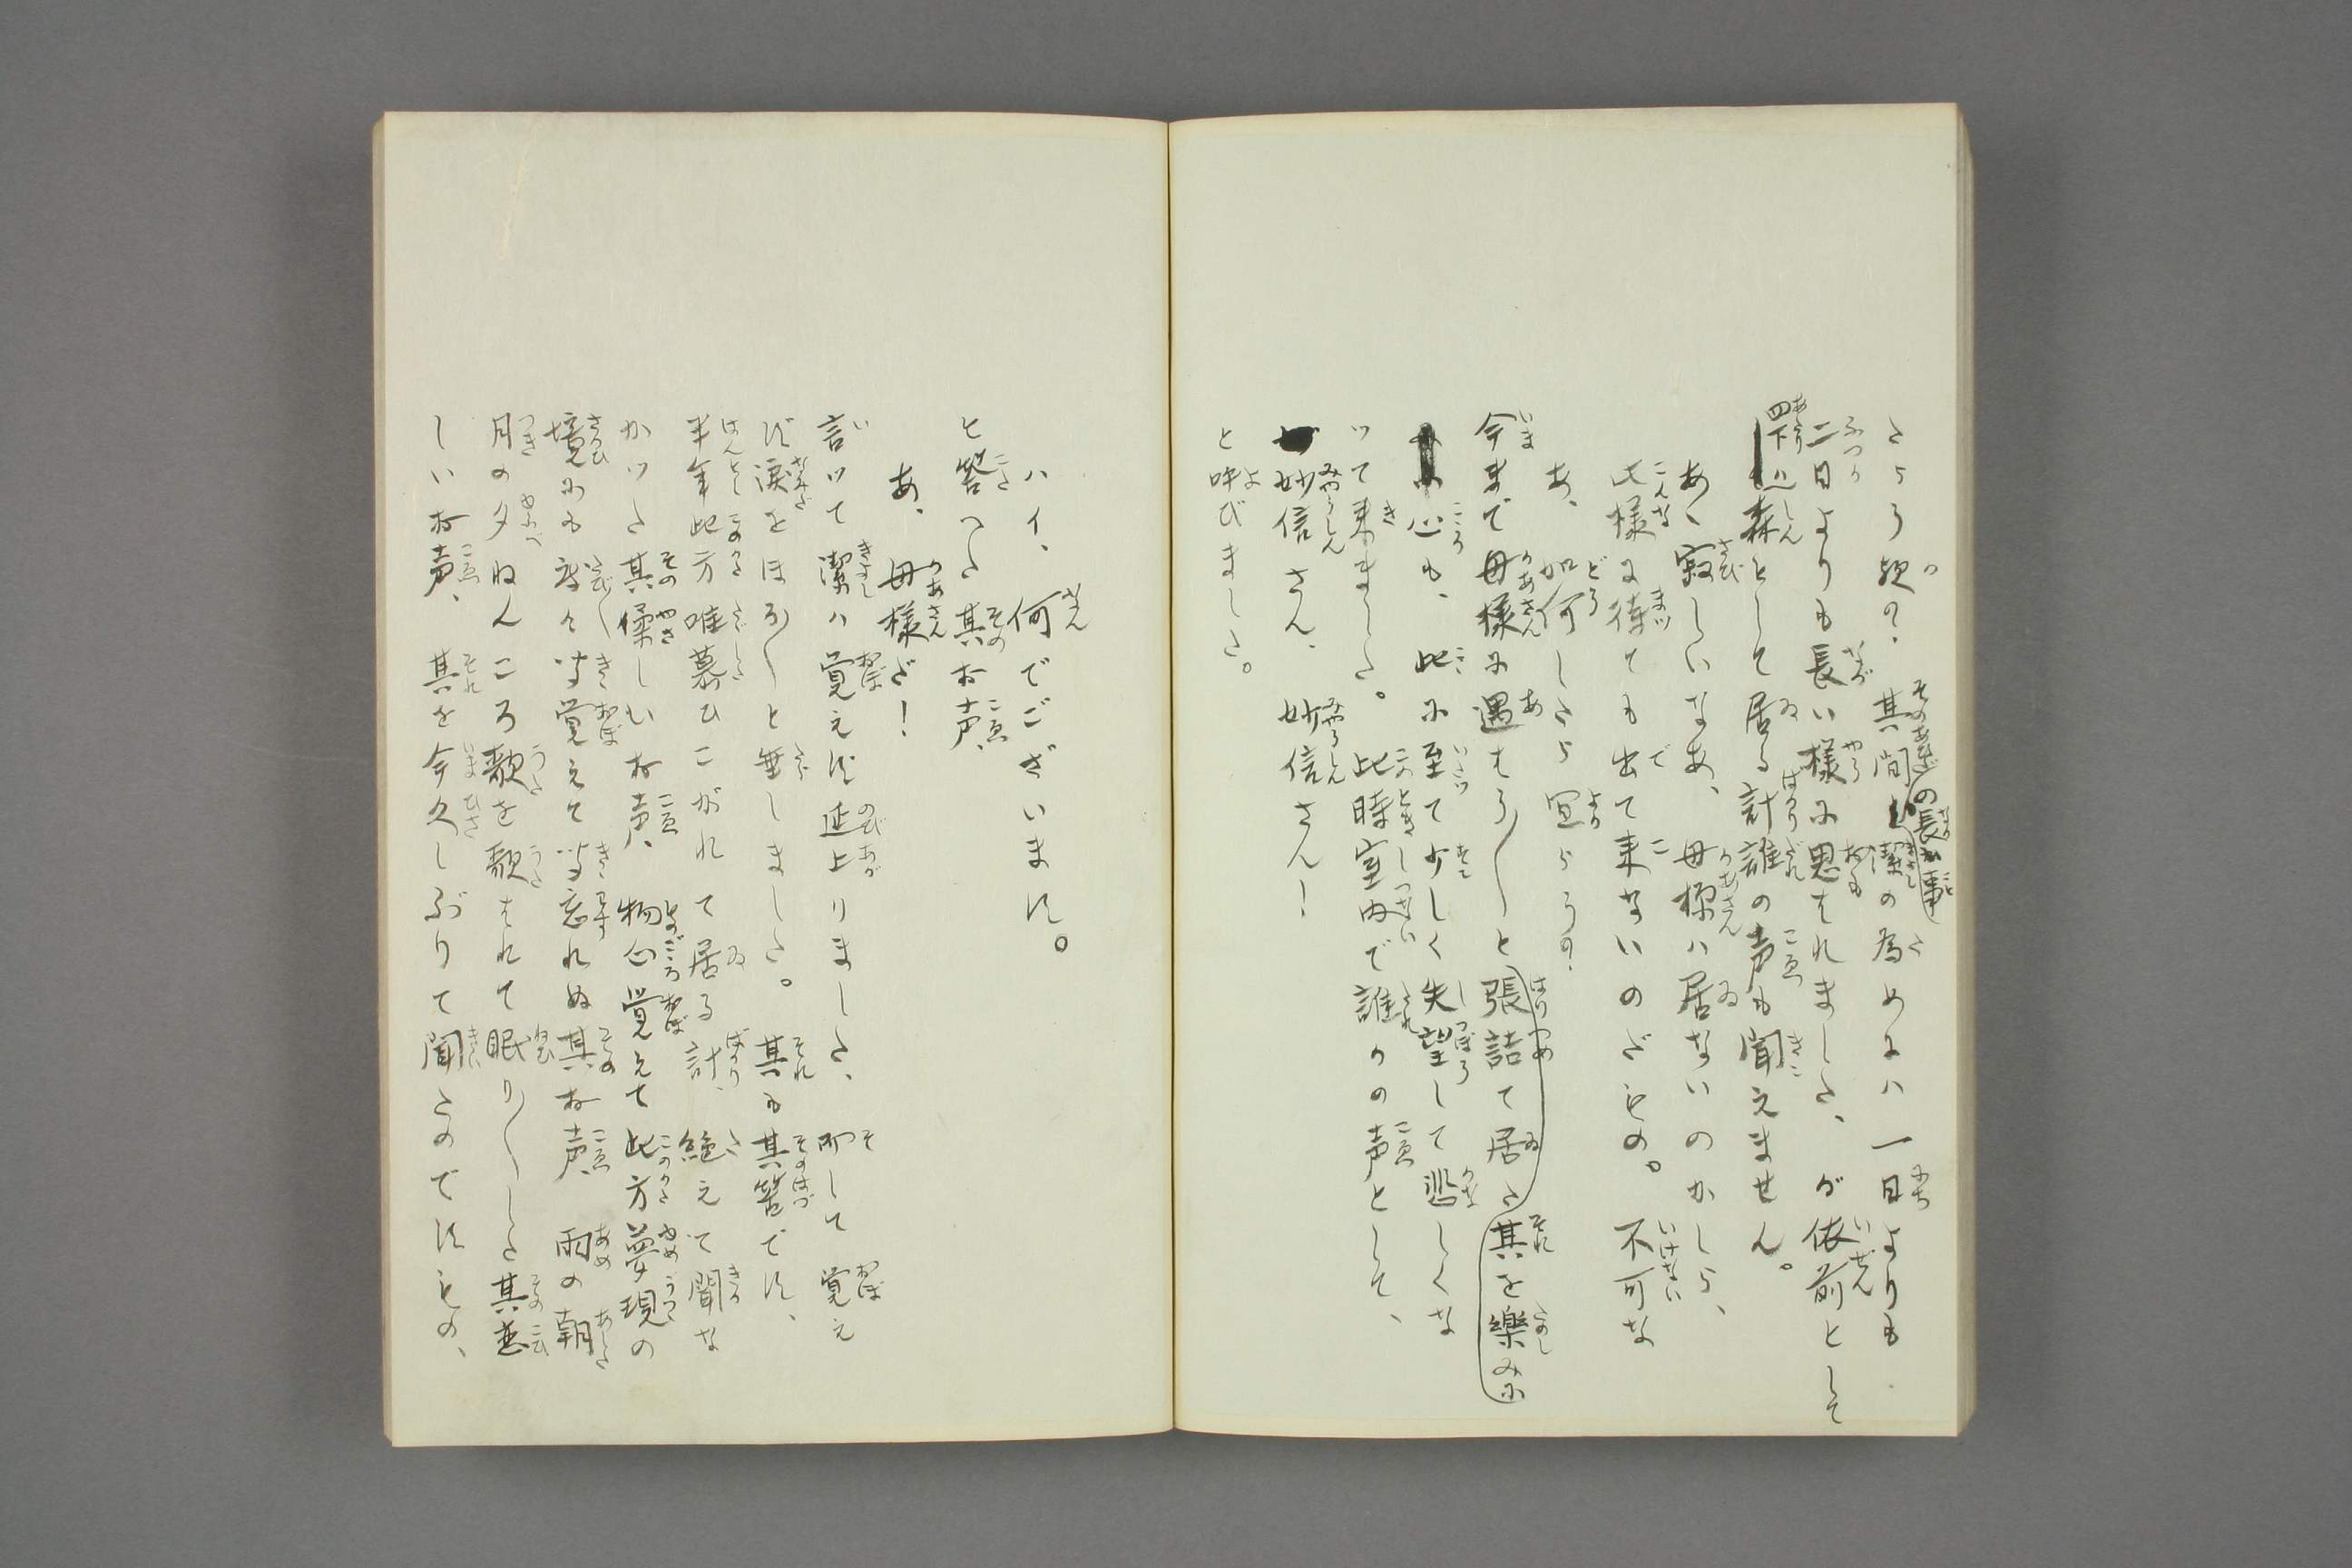 たらう歟の。其間の長か事潔の為めには一日よりも
二日よりも長い様に思はれました、が依前として
四下は森として居る計誰の声も聞えません。
あゝ寂しいなあ、母様ハ居ないのかしら、
此様に待ても出て来ないのだもの。不可な
あ、如何したら宜らうの。
今まで母様に遇はう〳〵と張詰て居た其を樂みに
心も、此に至て少しく失望して悲しくな
ツて来ました。此時室内で誰かの声として、
妙信さん、妙信さん！
と呼びました。
ハイ、何でございます。
と答へた其お声、
あ、母様だ！
言ツて潔ハ覚えず延上りました、而して覚え
ず涙をほろ〳〵と垂しました。其も其筈です、
半年此方唯慕ひこがれて居る計、絶えて聞な
かツた其優しいお声、物心覚えて此方夢現の
境にも度々聞覚えて聞忘れぬ其お声、雨の朝
月の夕ねんころ歌を歌はれて眠り〳〵した其恋
しいお声、其を今久しぶりて聞たのですもの、